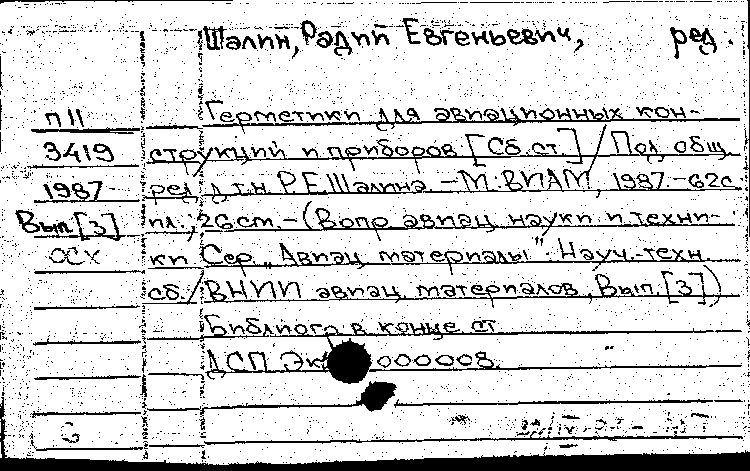 Шалин, Радий Евгеньевич, ред.
П11
Герметики для авиационных кон-
3419
струкций и приборов [Сб. ст.] / Под общ.
1987-
ред. д.т.н. Р.Е.Шалина. - М. ВИАМ, 1987. - 62с.
Вып[3]
ил.; 26 ст. - (Вопр авиац. науки и техни-
ОСХ
ки Сер. „Авиац материалы". Науч.-техн.
сб. / ВНИИ авиац. материалов, Вып. [3])
Библиогр в конце ст
ДСП Экз 000008.
6